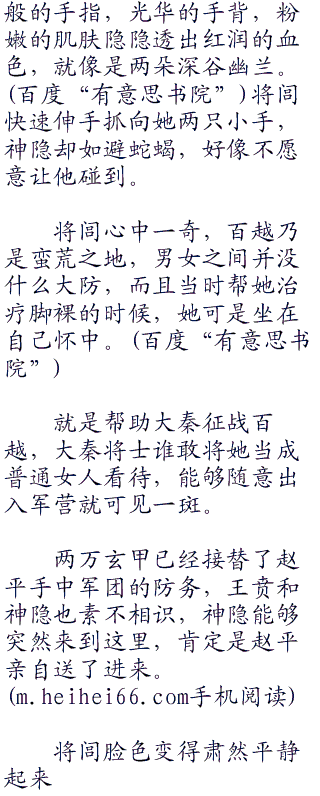 般的手指，光华的手背，粉
嫩的肌肤隐隐透出红润的血
色，就像是两朵深谷幽兰。
(百度“有意思书院”)将闾
快速伸手抓向她两只小手，
神隐却如避蛇蝎，好像不愿
意让他碰到。
将闾心中一奇，百越乃
是蛮荒之地，男女之间并没
什么大防，而且当时帮她治
疗脚裸的时候，她可是坐在
自己怀中。(百度“有意思书
院”)
就是帮助大秦征战百
越，大秦将士谁敢将她当成
普通女人看待，能够随意出
入军营就可见一斑。
两万玄甲已经接替了赵
平手中军团的防务，王贲和
神隐也素不相识，神隐能够
突然来到这里，肯定是赵平
亲自送了进来。
(m.heihei66.com手机阅读)
将闾脸色变得肃然平静
起来